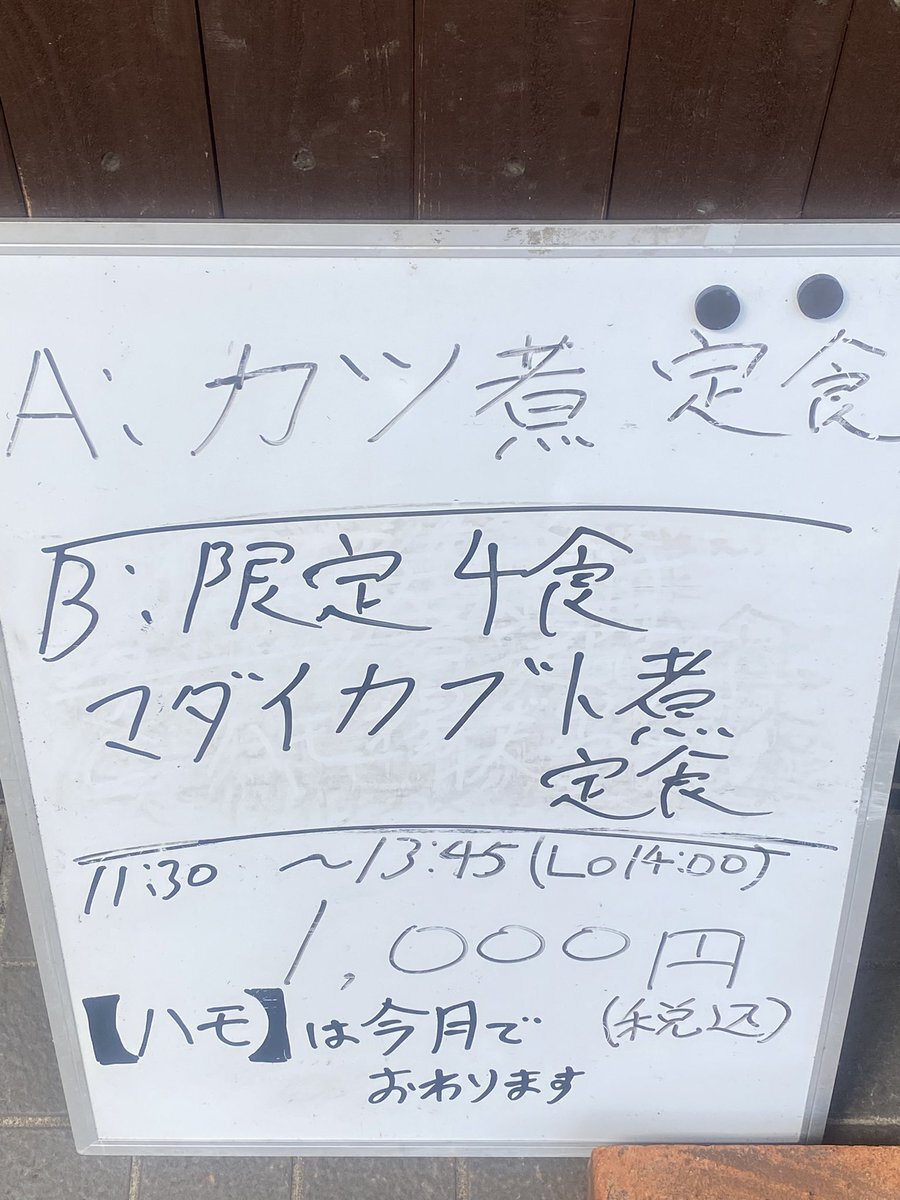 A: カツ煮 定食
B: 限定 4食
マダイカブト煮
定食
11:30 ～13:45(LO14:00)
1,000円
(税込)
【ハモ】は今月で
おわります